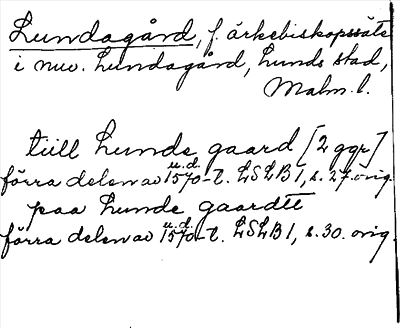 Lundagård, f. ärkebiskopssäte
i nuv. Lundagård, Lunds stad,
Malm. l.
tiill Lunde gaard [2 ggr]
förra delen av u.d. 1570-t. LSLB 1, s. 27. orig.
paa Lunde gaardtt
förra delen av u.d. 1570-t. LSLB 1, s. 30. orig.